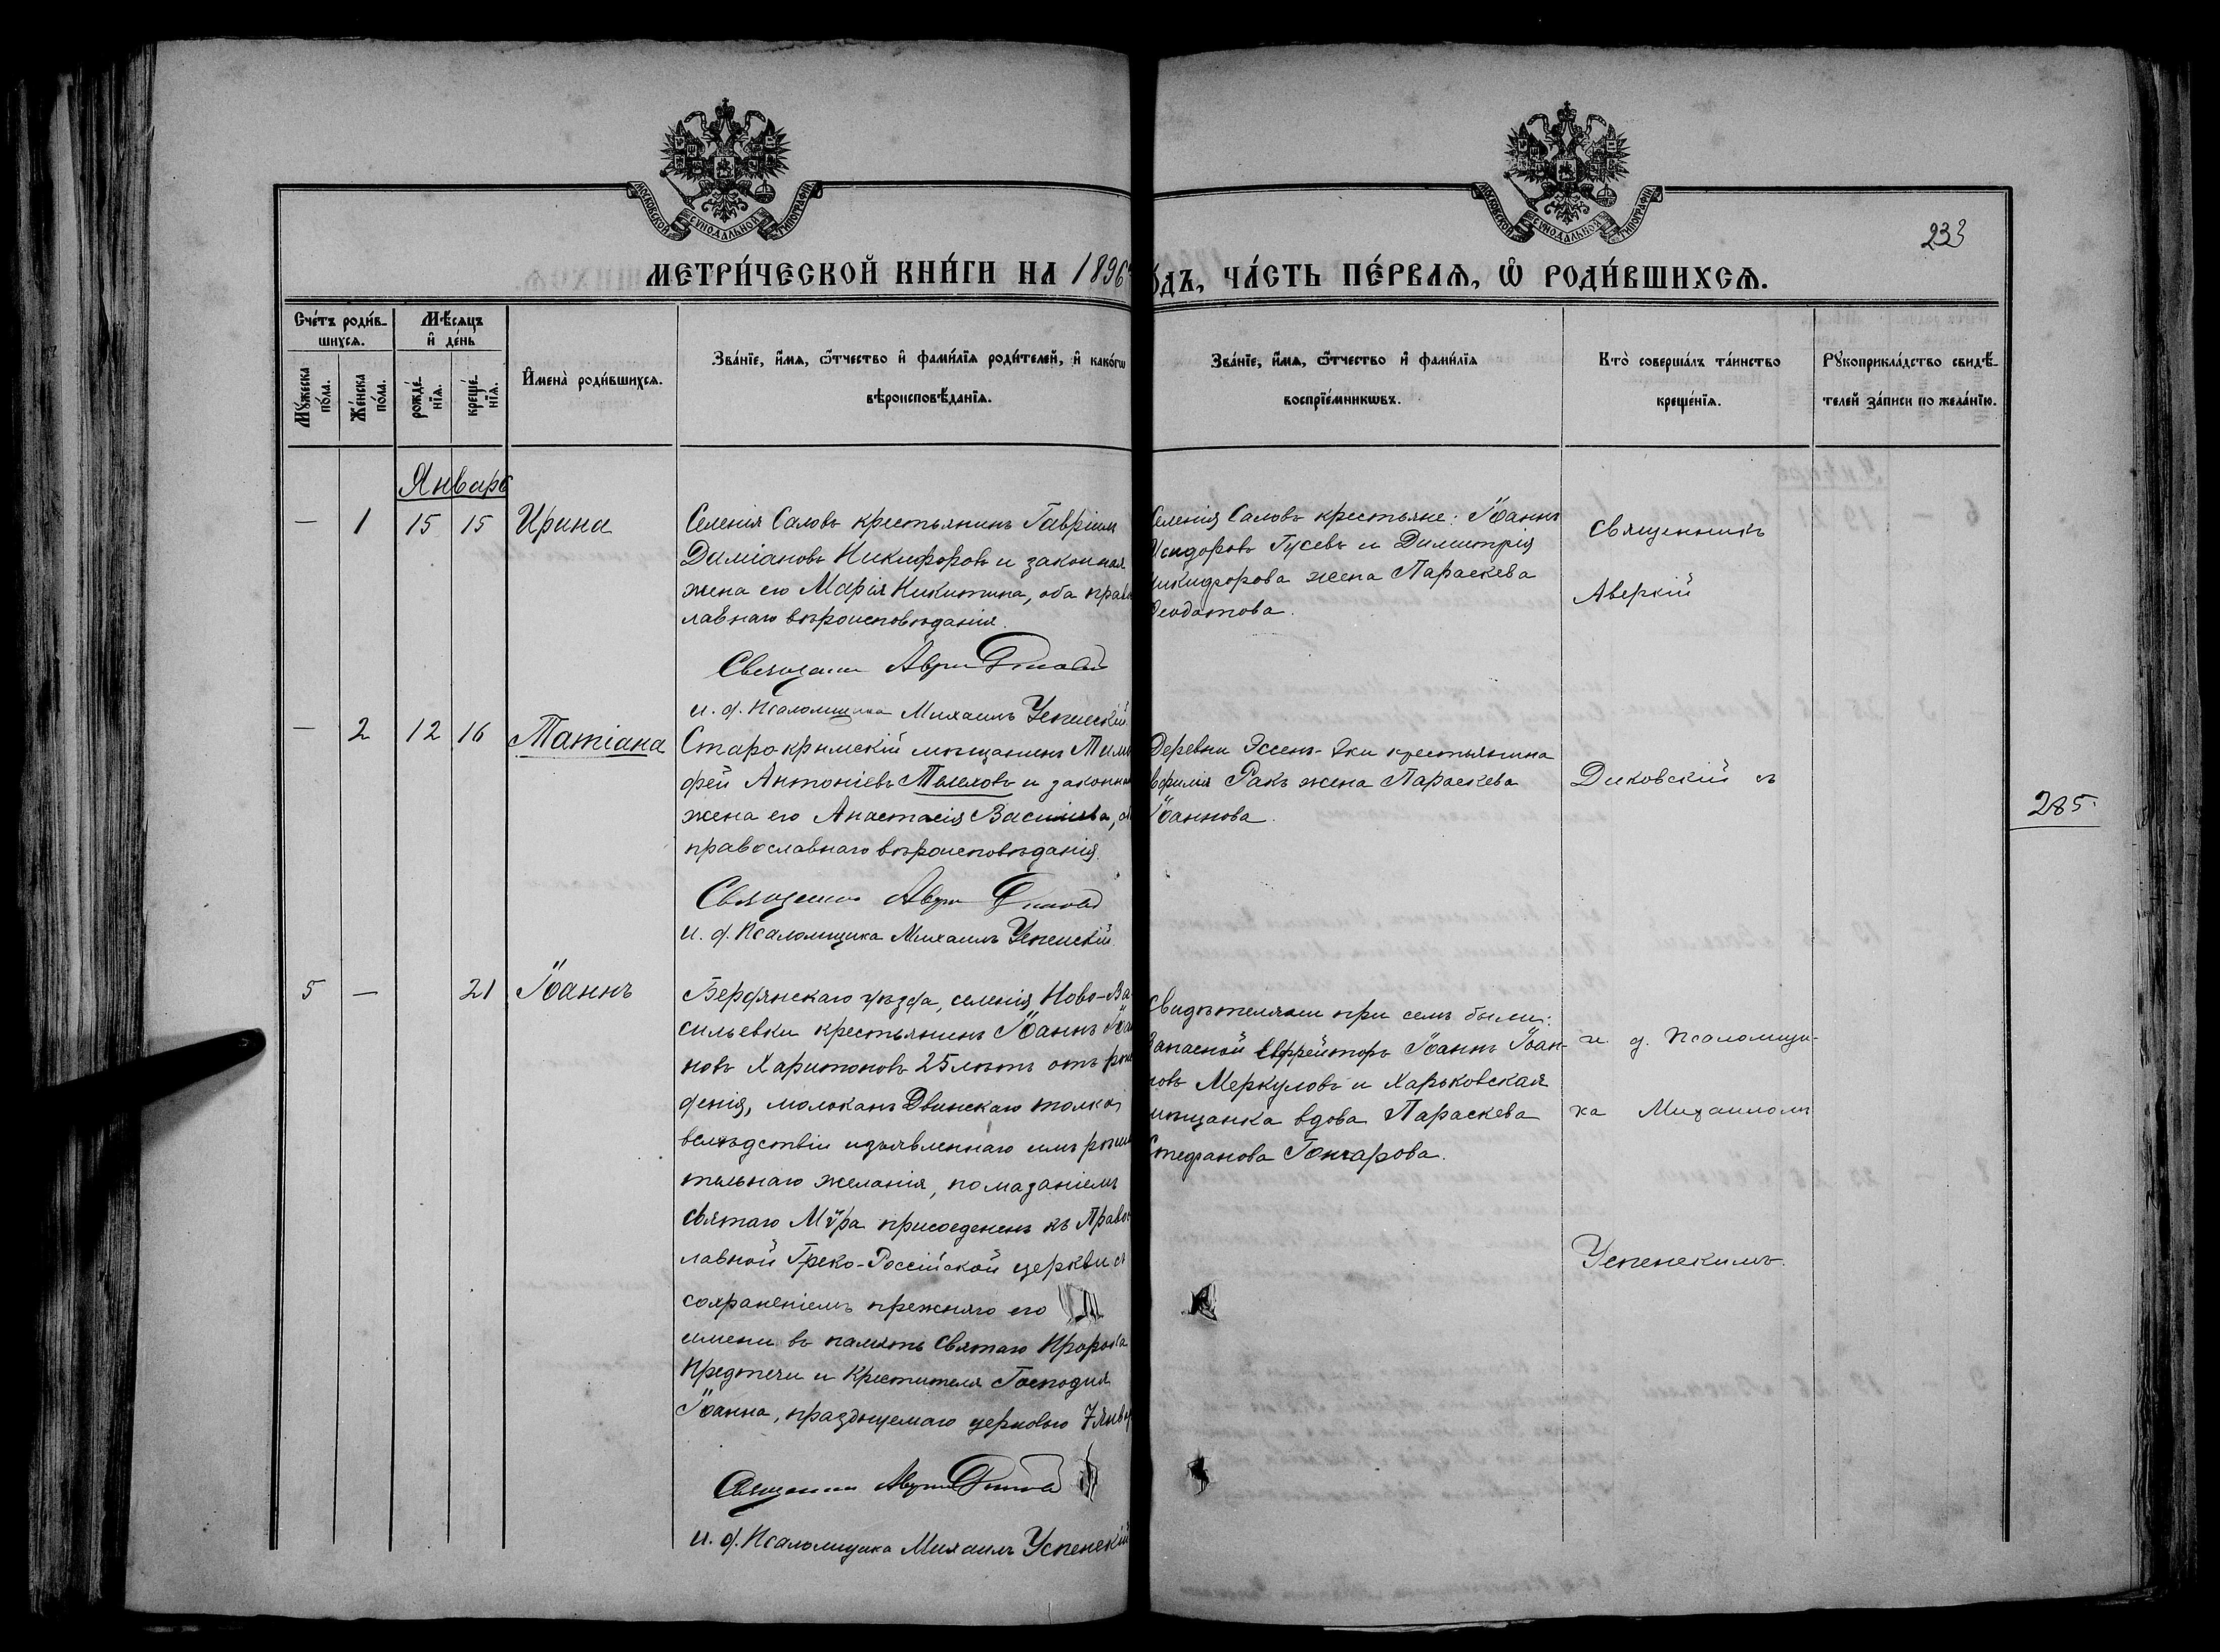 МОСКОВСКОЙ СѴНОДАЛЬНОЙ ТИПОГРАФІИ
МОСКОВСКОЙ СѴНОДАЛЬНОЙ ТИПОГРАФІИ
233
МЕТРИ́ЧЕСКОЙ КНИ́ГИ НА 1896
ОДЪ, ЧА́СТЬ ПЕ́РВАѦ, Ѡ҆ РОДИ́ВШИХСѦ.
Сче́тъ роди́в-
шихсѧ.
Мѣ́сѧцъ
и҆ де́нь
Мꙋ́жеска по́ла.
Же́нска по́ла.
рожде́-
нїѧ.
креще́-
нїѧ.
И҆мена̀ роди́вшихсѧ.
Зва́нїе, и҆́мѧ, ѻ҆́тчество и҆ фами́лїѧ роди́телей, и҆ како́гѡ
вѣроисповѣ́данїѧ.
Зва́нїе, и҆́мѧ, ѻ҆́тчество и҆ фами́лїѧ
воспрїе́мникѡвъ.
Кто̀ соверша́лъ та́инство
креще́нїѧ.
Рꙋкоприкла́дство свидѣ́-
телей за́писи по жела́нїю.
Январь
— 1 15 15 Ирина
Селенія Саловъ крестьянинъ Гавріилъ
Даміановъ Никифоровъ и законная
жена его Марія Никитина, оба право
лавнаго вѣроисповѣданія.
Священникъ
и. д. Псаломщика Михаилъ Успенскій
Селенія Саловъ крестьяне: Іоаннъ
Исидоровъ Гусевъ и Димитрія
Никифорова жена Параскева
Феодотова.
Священникъ
Аверкій
— 2 12 16 Татіана
Старо-крымскій мѣщанинъ Тимо
фей Антоніевъ и законная
жена его Анастасія Василіева, об
православнаго вѣроисповѣданія.
Священникъ
и. д. Псаломщика Михаилъ Успенскій
Деревни Эссенъ-Эки крестьянина
Рокъ жена Параскева
Іоаннова.
Диковскій съ
285
5 — 21 Іоаннъ
Бердянскаго уѣзда, селенія Ново-Ва
сильевки крестьянинъ Іоаннъ Іоан
новъ Харитоновъ 25 лѣтъ отъ рож
денія, молоканъ Двинскаго толка,
вслѣдствіи изъявленнаго имъ рѣши
тельнаго желанія, помазаніемъ
святаго Мѵра присоединенъ къ Правос
лавной Греко-Россійской церкви съ
сохраненіемъ прежняго его
имени въ память Святаго Пророка
Предтечи и Крестителя Господня
Іоанна, празднуемаго церковью 7 Янв
Священникъ
и. д. Псаломщика Михаилъ Успенскій
Свидѣтелями при семъ были:
Запасной Ефрейторъ Іоаннъ Іоан-
новъ Меркуловъ и Харьковская
мѣщанка вдова Параскева
Стефанова Гончарова.
и. д. Псаломщи-
ка Михаиломъ
Успенскимъ.